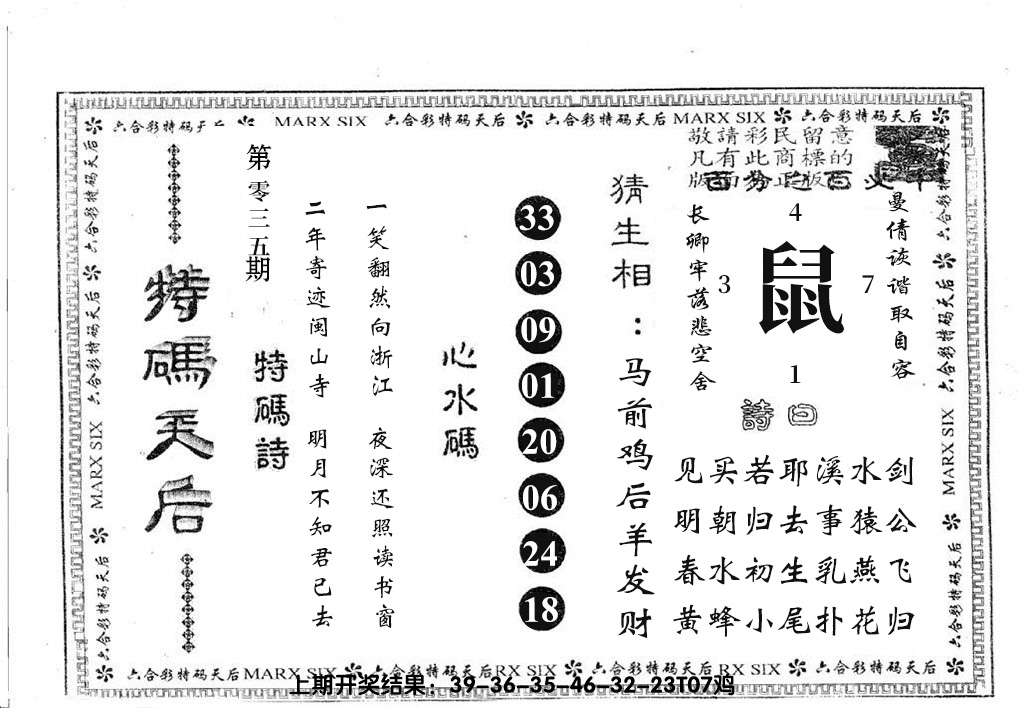 六合彩特码天后 MARX SIX 六合彩特码天后 六合彩特码天后 MARX SIX 六合彩特码天后
敬請彩民留意
凡有此商標的
曼倩诙谐取自容
4
3
鼠
7
1
长卿牢落悲空舍
詩曰
见买若耶溪水剑
明朝归去事猿公
春水初生乳燕飞
黄蜂小尾扑花归
猜生相：马前鸡后羊发财
33
03
09
01
20
06
24
18
心水碼
一笑翻然向浙江 夜深还照读书窗
二年寄迹闽山寺 明月不知君已去
特碼詩
第零三五期
特碼天后
六合彩特码天后 六合彩特码天后 MARX SIX 六合彩特码天后
六合彩特码天后 六合彩特码天后 MARX SIX 六合彩特码天后
六合彩特码天后 MARX SIX 六合彩特码天后 RX SIX 六合彩特码天后 RX SIX 六合彩特码天后
上期开奖结果：39-36-35-46-32-23T07鸡